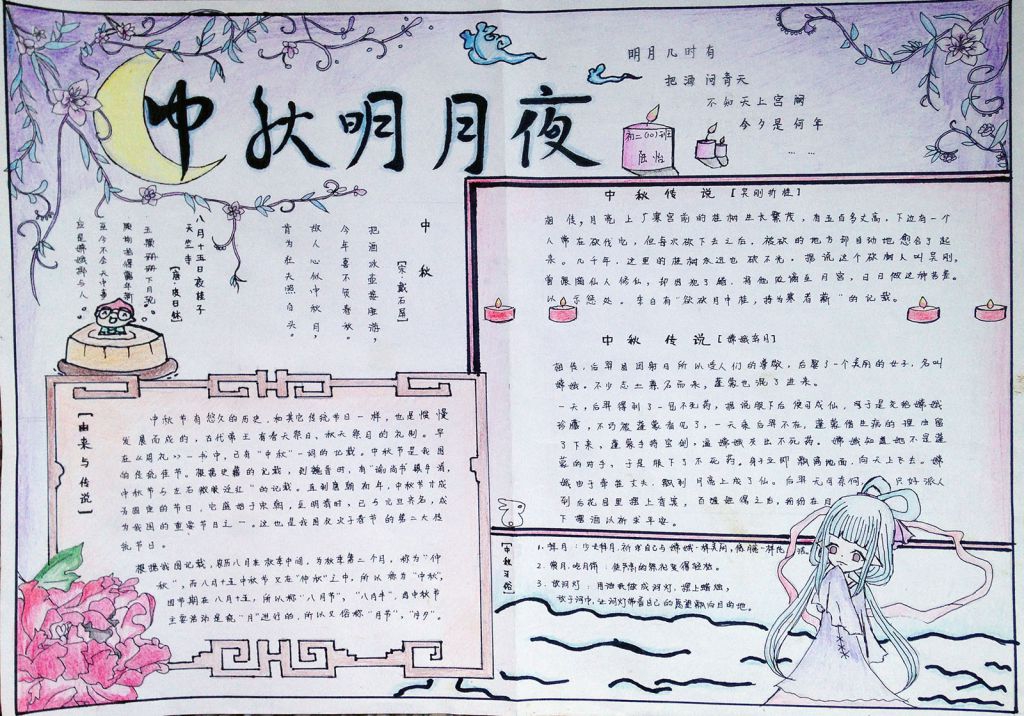 中秋明月夜
明月几时有
把酒问青天
不知天上宫阙
今夕是何年
… …
初二(10)班
八月十五日夜桂子
天竺寺
[唐·皮日休]
玉颗珊珊下月轮
至今不会天中事
应是嫦娥掷与人
中秋
[宋·戴石屏]
把酒冰壶接胜游,
今年喜不负春秋
故人心似中秋月,
肯为狂夫照白头。
中秋传说[吴刚折桂]
相传,月亮上广寒宫前的桂树生长繁茂,有五百多丈高,下边有一个
人常在砍伐它,但每次砍下去之后,被砍的地方却自动地愈合了起
来。几千年,这里的桂树永远也砍不光。据说这个砍树人叫吴刚。
曾跟随仙人修仙,却因犯了错,将他贬谪至月宫,日日做这种苦差。
以示惩处。李白有“欲砍月中桂,持为寒者薪”的记载。
中秋传说[嫦娥奔月]
相传,后羿 因射日所以受人们的尊敬,后娶了一个美丽的女子,名叫
嫦娥。不少志士慕名而来,蓬蒙也混了进来。
一天,后羿得到了一包不死药,据说服下后便可成仙,于是先给嫦娥
珍藏,不巧被蓬蒙看见了,一天某后羿不在,蓬蒙借生病的理由留
了下来,蓬蒙手持宝剑,逼嫦娥交出不死药。嫦娥知道她不是蓬
蒙的对手,于是服下了不死药。身子立即飘离地面,向天上飞去。嫦
娥由于牵挂丈夫,飘到月亮上成了仙。后羿无可奈何, 只好派人
到后花园里摆上香案, 百姓 得之后,纷纷在月
下摆 以祈求平安。
[由来与传说]
中秋节有悠久的历史,和其它传统节日一样,也是慢慢
发展而成的,古代帝王有春天祭日,秋天祭月的礼制。早
在《周礼》一书中,已有“中秋”一词的记载。中秋节是我国
的传统佳节。根据史籍的记载,到魏晋时,有“谕尚书镇牛渚,
中秋节与左右微服泛江”的记载。直到唐朝初年,中秋节才成
为固定的节日,它盛始于宋朝,至明清时,已与元旦齐名,成
为我国的重要节日之一。这也是我国仅次于春节的第二大传
统节日。
根据我国记载,农历八月在秋季中间,为秋季第二个月,称为“仲
秋”,而八月十五中秋节又在“仲秋”之中,所以称为“中秋”,
因节期在八月十五,所以称“八月节”,“八月半”,因中秋节
主要活动是绕“月”进行的,所以又俗称“月节”,“月夕”。
[中秋习俗]
1. 拜月:少女拜月,祈求自己与嫦娥一样美丽,
2. 赏月,吃月饼:
3. 放河灯: 河灯,摆上蜡烛,
放于河中,让河灯带着自己的愿望飘向目的地。